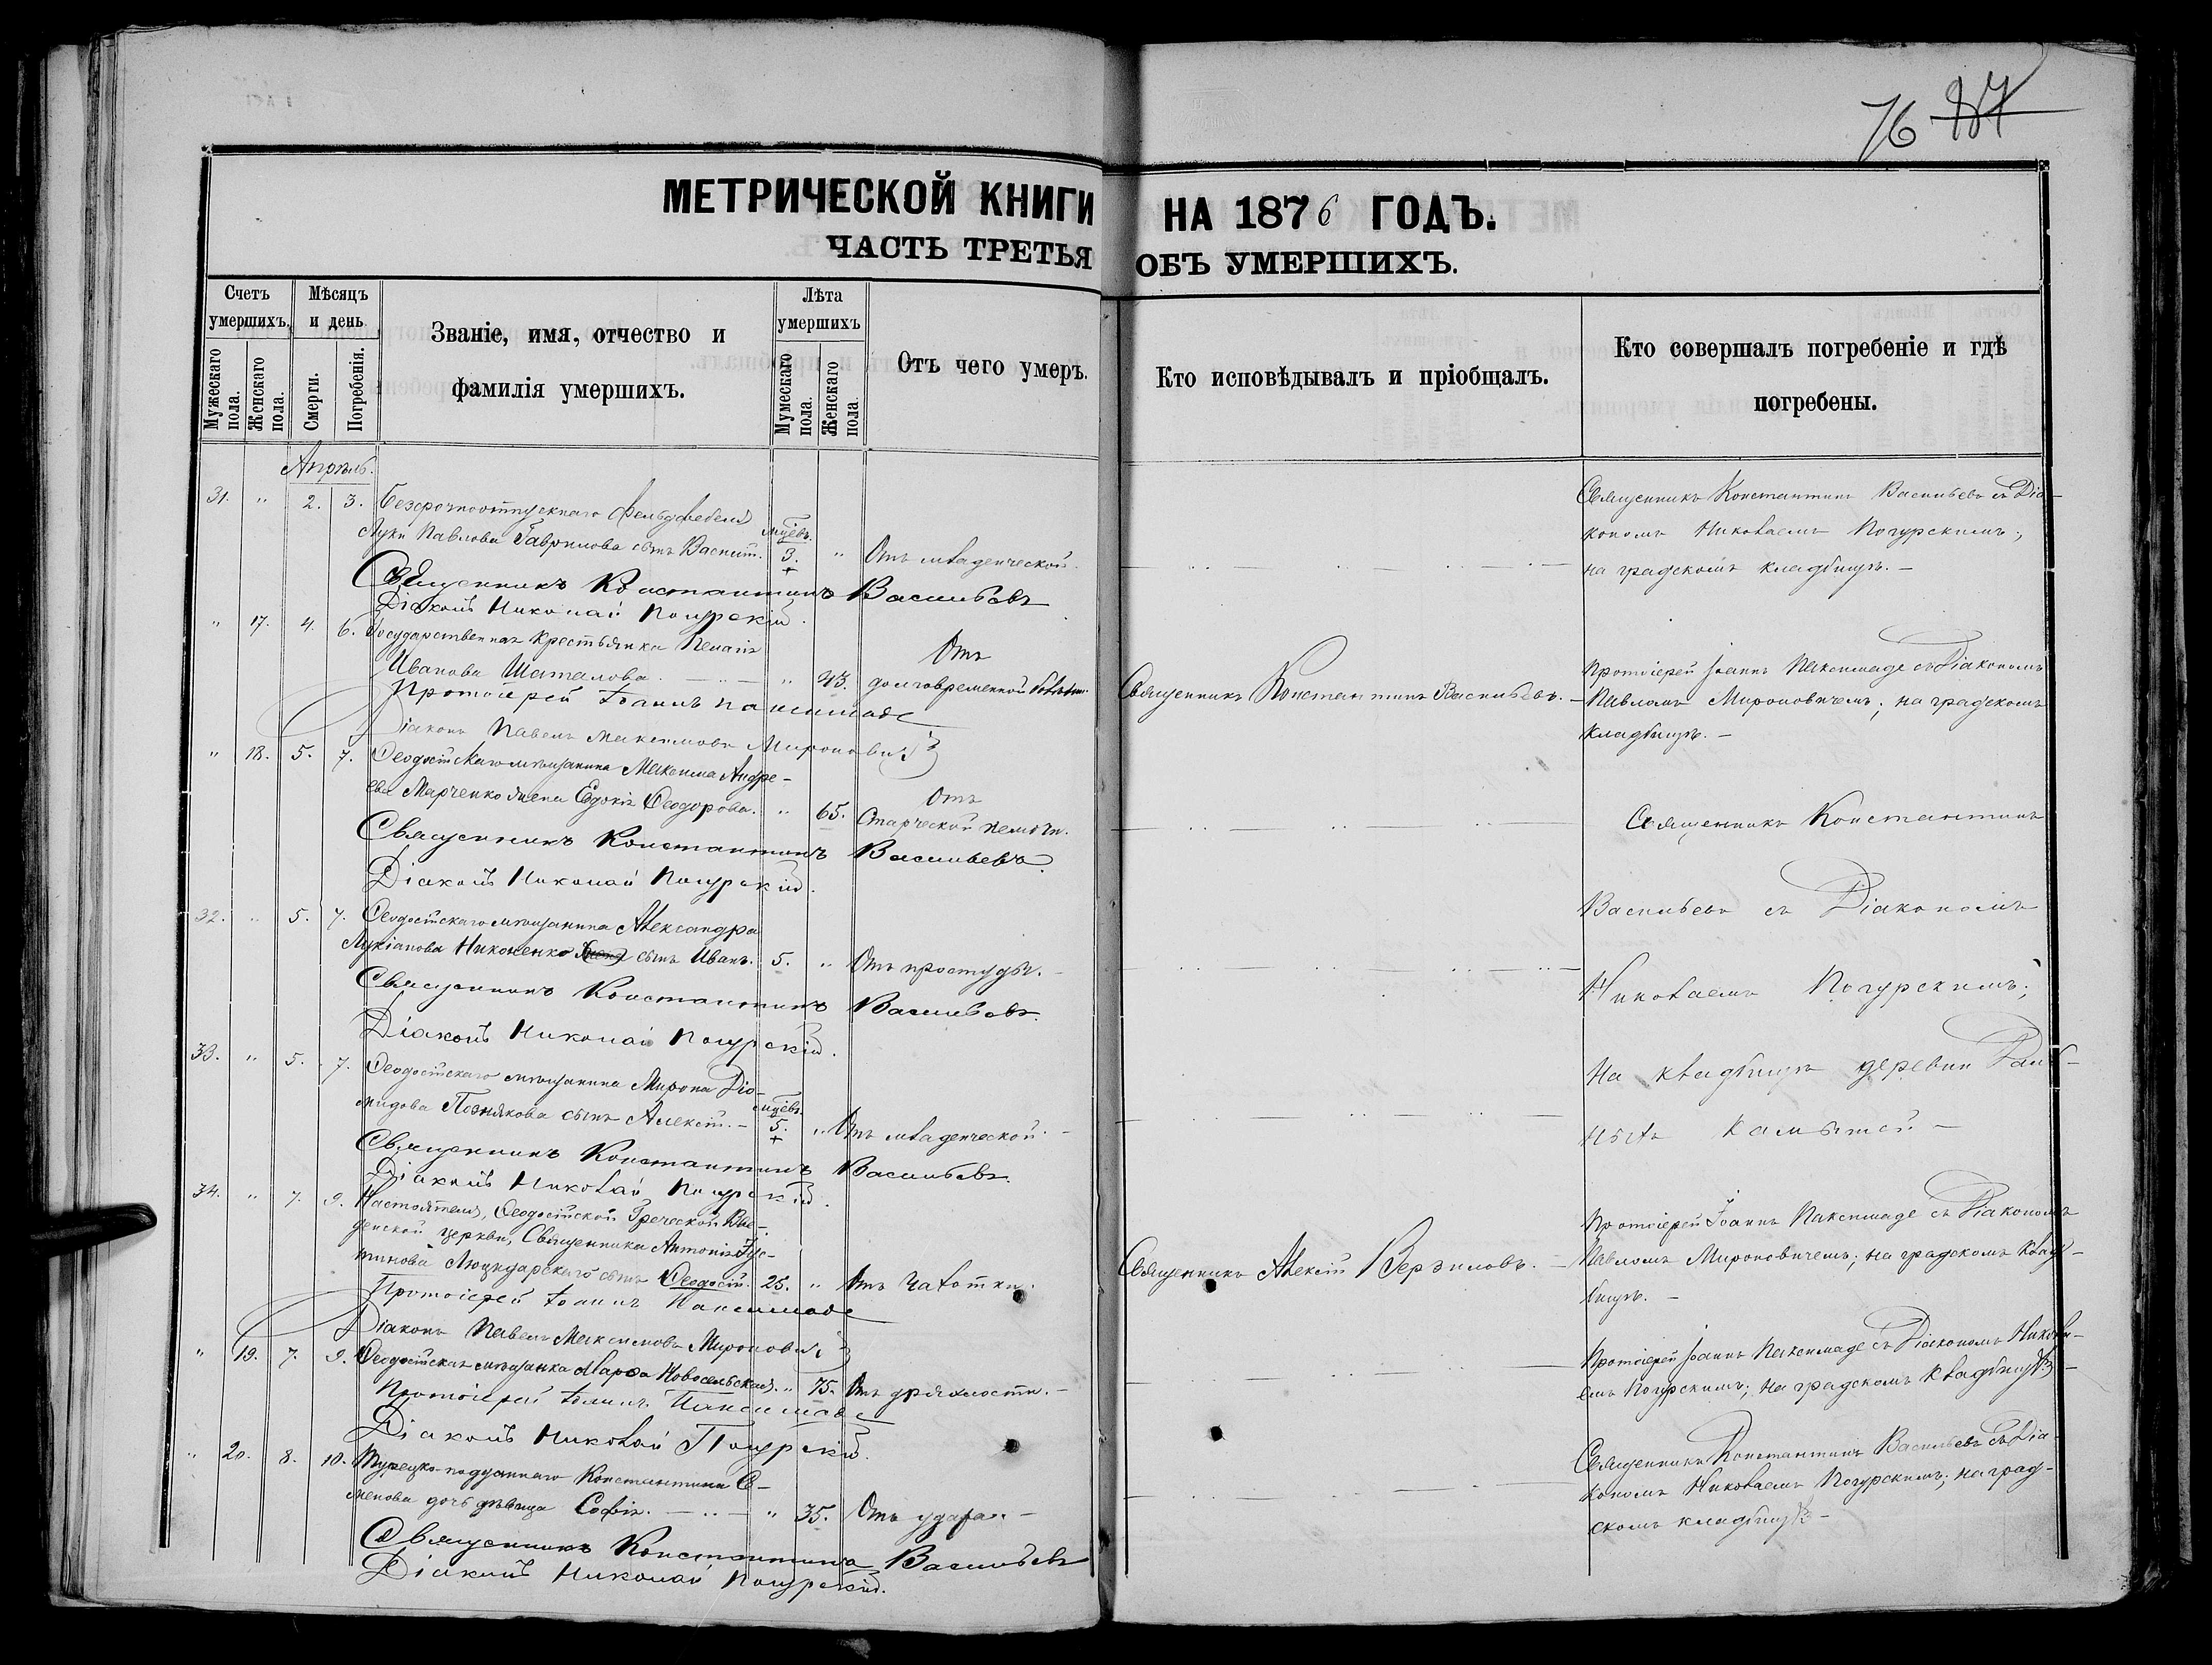 76 187
МЕТРИЧЕСКОЙ КНИГИ НА 1876 ГОДЪ.
ЧАСТЬ ТРЕТЬЯ ОБЪ УМЕРШИХЪ.
Счетъ умершихъ.
Мужескаго пола.
Женскаго пола.
Мѣсяцъ и день
Смерти.
Погребенія.
Званіе, имя, отчество и
фамилія умершихъ.
Лѣта умершихъ
Мужескаго пола.
Женскаго пола.
Отъ чего умеръ.
Кто исповѣдывалъ и пріобщалъ.
Кто совершалъ погребеніе и гдѣ
погребены.
Апрѣль.
31. " 2. 3. Безсрочноотпускнаго Фельдфебеля
Луки Павлова Гаврилова сынъ мцевъ. 3. " Отъ младенческой.
Священникъ Константинъ Васильевъ съ Діа-
кономъ Николаемъ Погурскимъ;
на градскомъ кладбищѣ.
Священникъ Константинъ Васильевъ
Діаконъ Николай Погурскій.
" 17. 4. 6. Государственная крестьянка Пелагія
Иванова Шаталова. " 43. Отъ долговременной болѣзни.
Священникъ Константинъ Васильевъ.
Протоіерей Іоаннъ Паксимаде съ Діакономъ
Павломъ Мироновичемъ; на градскомъ
кладбищѣ.
Протоіерей Іоаннъ Паксимаде
Діаконъ Павелъ Максимовъ Мироновичъ
" 18. 5. 7. Ѳеодосійскаго мѣщанина Максима Андре-
ева Марченко жена Евдокія Ѳеодорова. " 65. Отъ Старческой немочи.
Священникъ Константинъ Васильевъ.
Діаконъ Николай Погурскій.
32. " 5. 7. Ѳеодосійскаго мѣщанина Александра
Лукіанова Никоненко сынъ Иванъ. 5. " Отъ простуды.
Священникъ Константинъ Васильевъ.
Діаконъ Николай Погурскій.
33. " 5. 7. Ѳеодосійскаго мѣщанина Мирона Діо-
мидова Познякова сынъ Алексій. мцевъ 5. " Отъ младенческой.
Священникъ Константинъ Васильевъ.
Діаконъ Николай Погурскій.
Священникъ Константинъ
Васильевъ съ Діакономъ
Николаемъ Погурскимъ;
На кладбищѣ деревни Даль-
нѣй Камыши
34. " 7. 9. Настоятеля, Ѳеодосійской Греческой Вве-
денской церкви, Священника Антонія Іус-
тинова сынъ Ѳеодосій. 25. " Отъ Чахотки.
Священникъ Алексій
Протоіерей Іоаннъ Паксимаде съ Діакономъ
Павломъ Мироновичемъ; на градскомъ клад-
бищѣ.
Протоіерей Іоаннъ Паксимаде
Діаконъ Павелъ Максимовъ Мироновичъ
" 19. 7. 9. Ѳеодосійская мѣщанка Марѳа Новосельская. " 75. Отъ дряхлости.
Протоіерей Іоаннъ Паксимаде съ Діакономъ Никола-
емъ Погурскимъ; на градскомъ кладбищѣ
Протоіерей Іоаннъ Паксимаде
Діаконъ Николай Погурскій.
" 20. 8. 10. Турецко-подданнаго Константина Се-
менова дочь дѣвица Софія. " 35. Отъ удара.
Священникъ Константинъ Васильевъ съ Діа-
кономъ Николаемъ Погурскимъ; на град-
скомъ кладбищѣ
Священникъ Константинъ Васильевъ
Діаконъ Николай Погурскій.